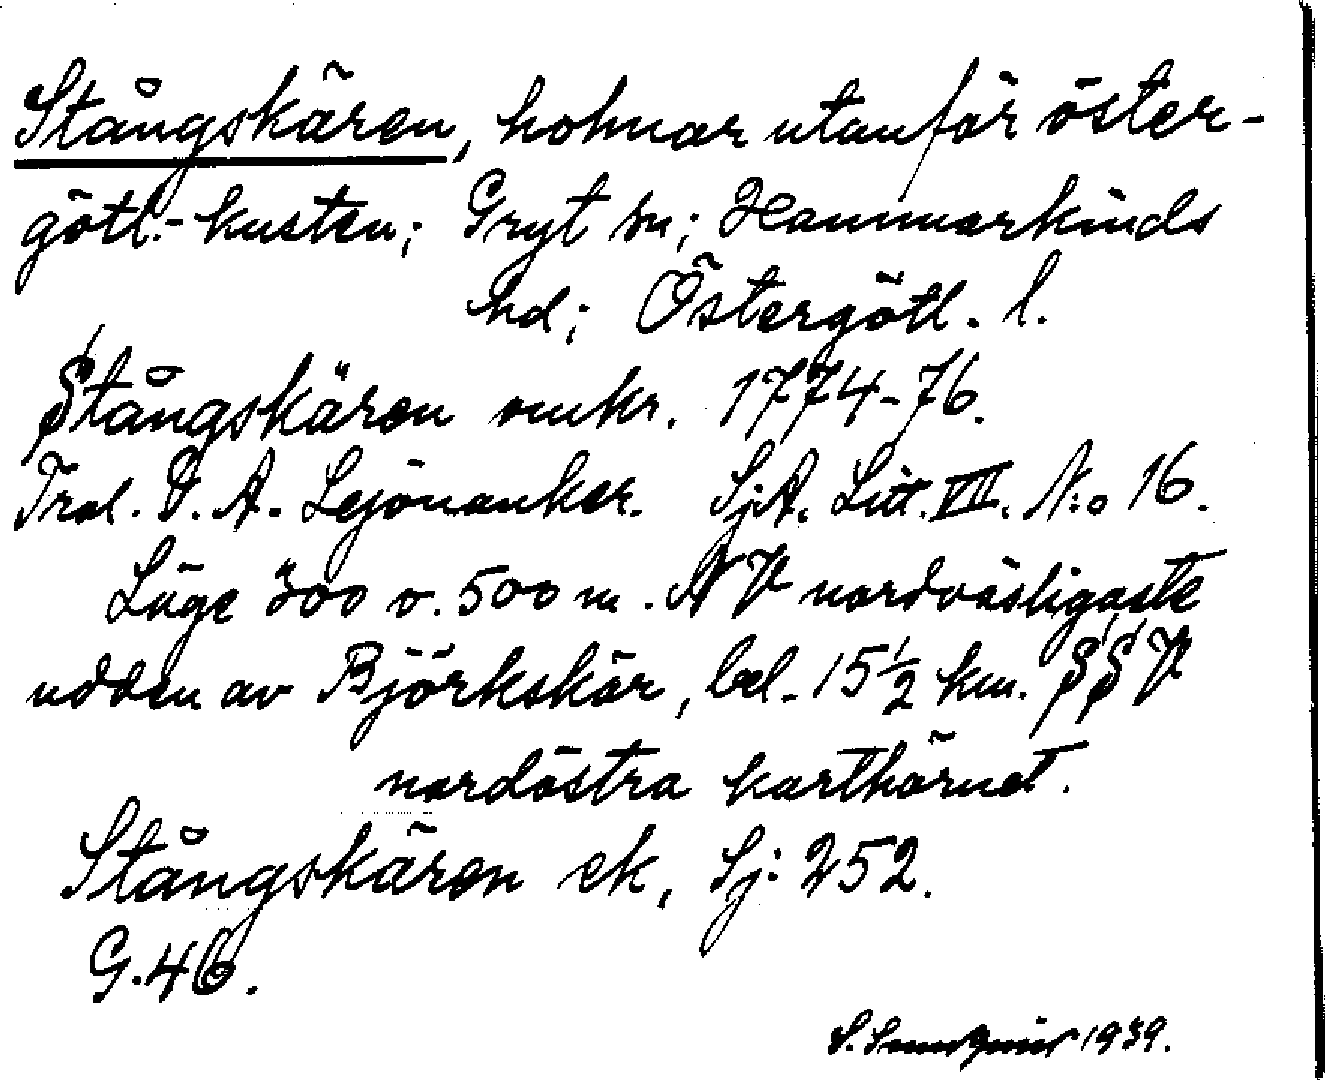 Stångskären, holmar utanför öster-
götl.-kusten; Gryt sn; Hammarkinds
hd; Östergötl. l.
Stångskären omkr. 1774-76.
Trol. V. A. Lejonanker. SjA. Litt. VII. N:o 16.
Läge 300 o. 500 m. NV nordvästligaste
udden av Björkskär, bel. 15 1/2 km. SSV
nordöstra karthörnet.
Stångskären ek, Sj: 252.
G. 46.
1939.